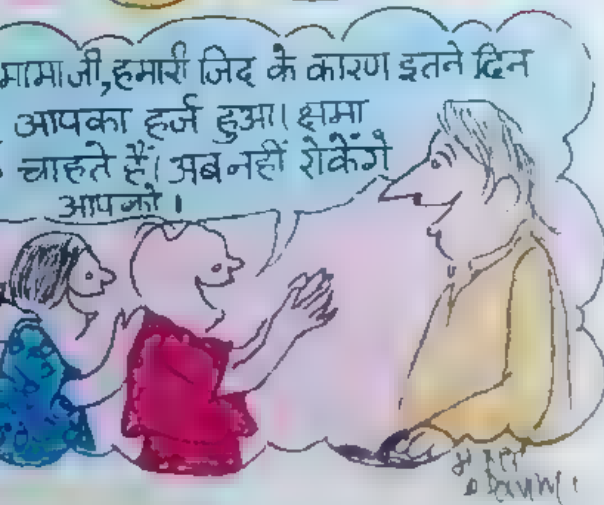 मामाजी,हमारी जिद के कारण इतने दिन
आपका हर्ज हुआ। क्षमा
चाहते हैं। अब नहीं रोकेंगे
आपको।